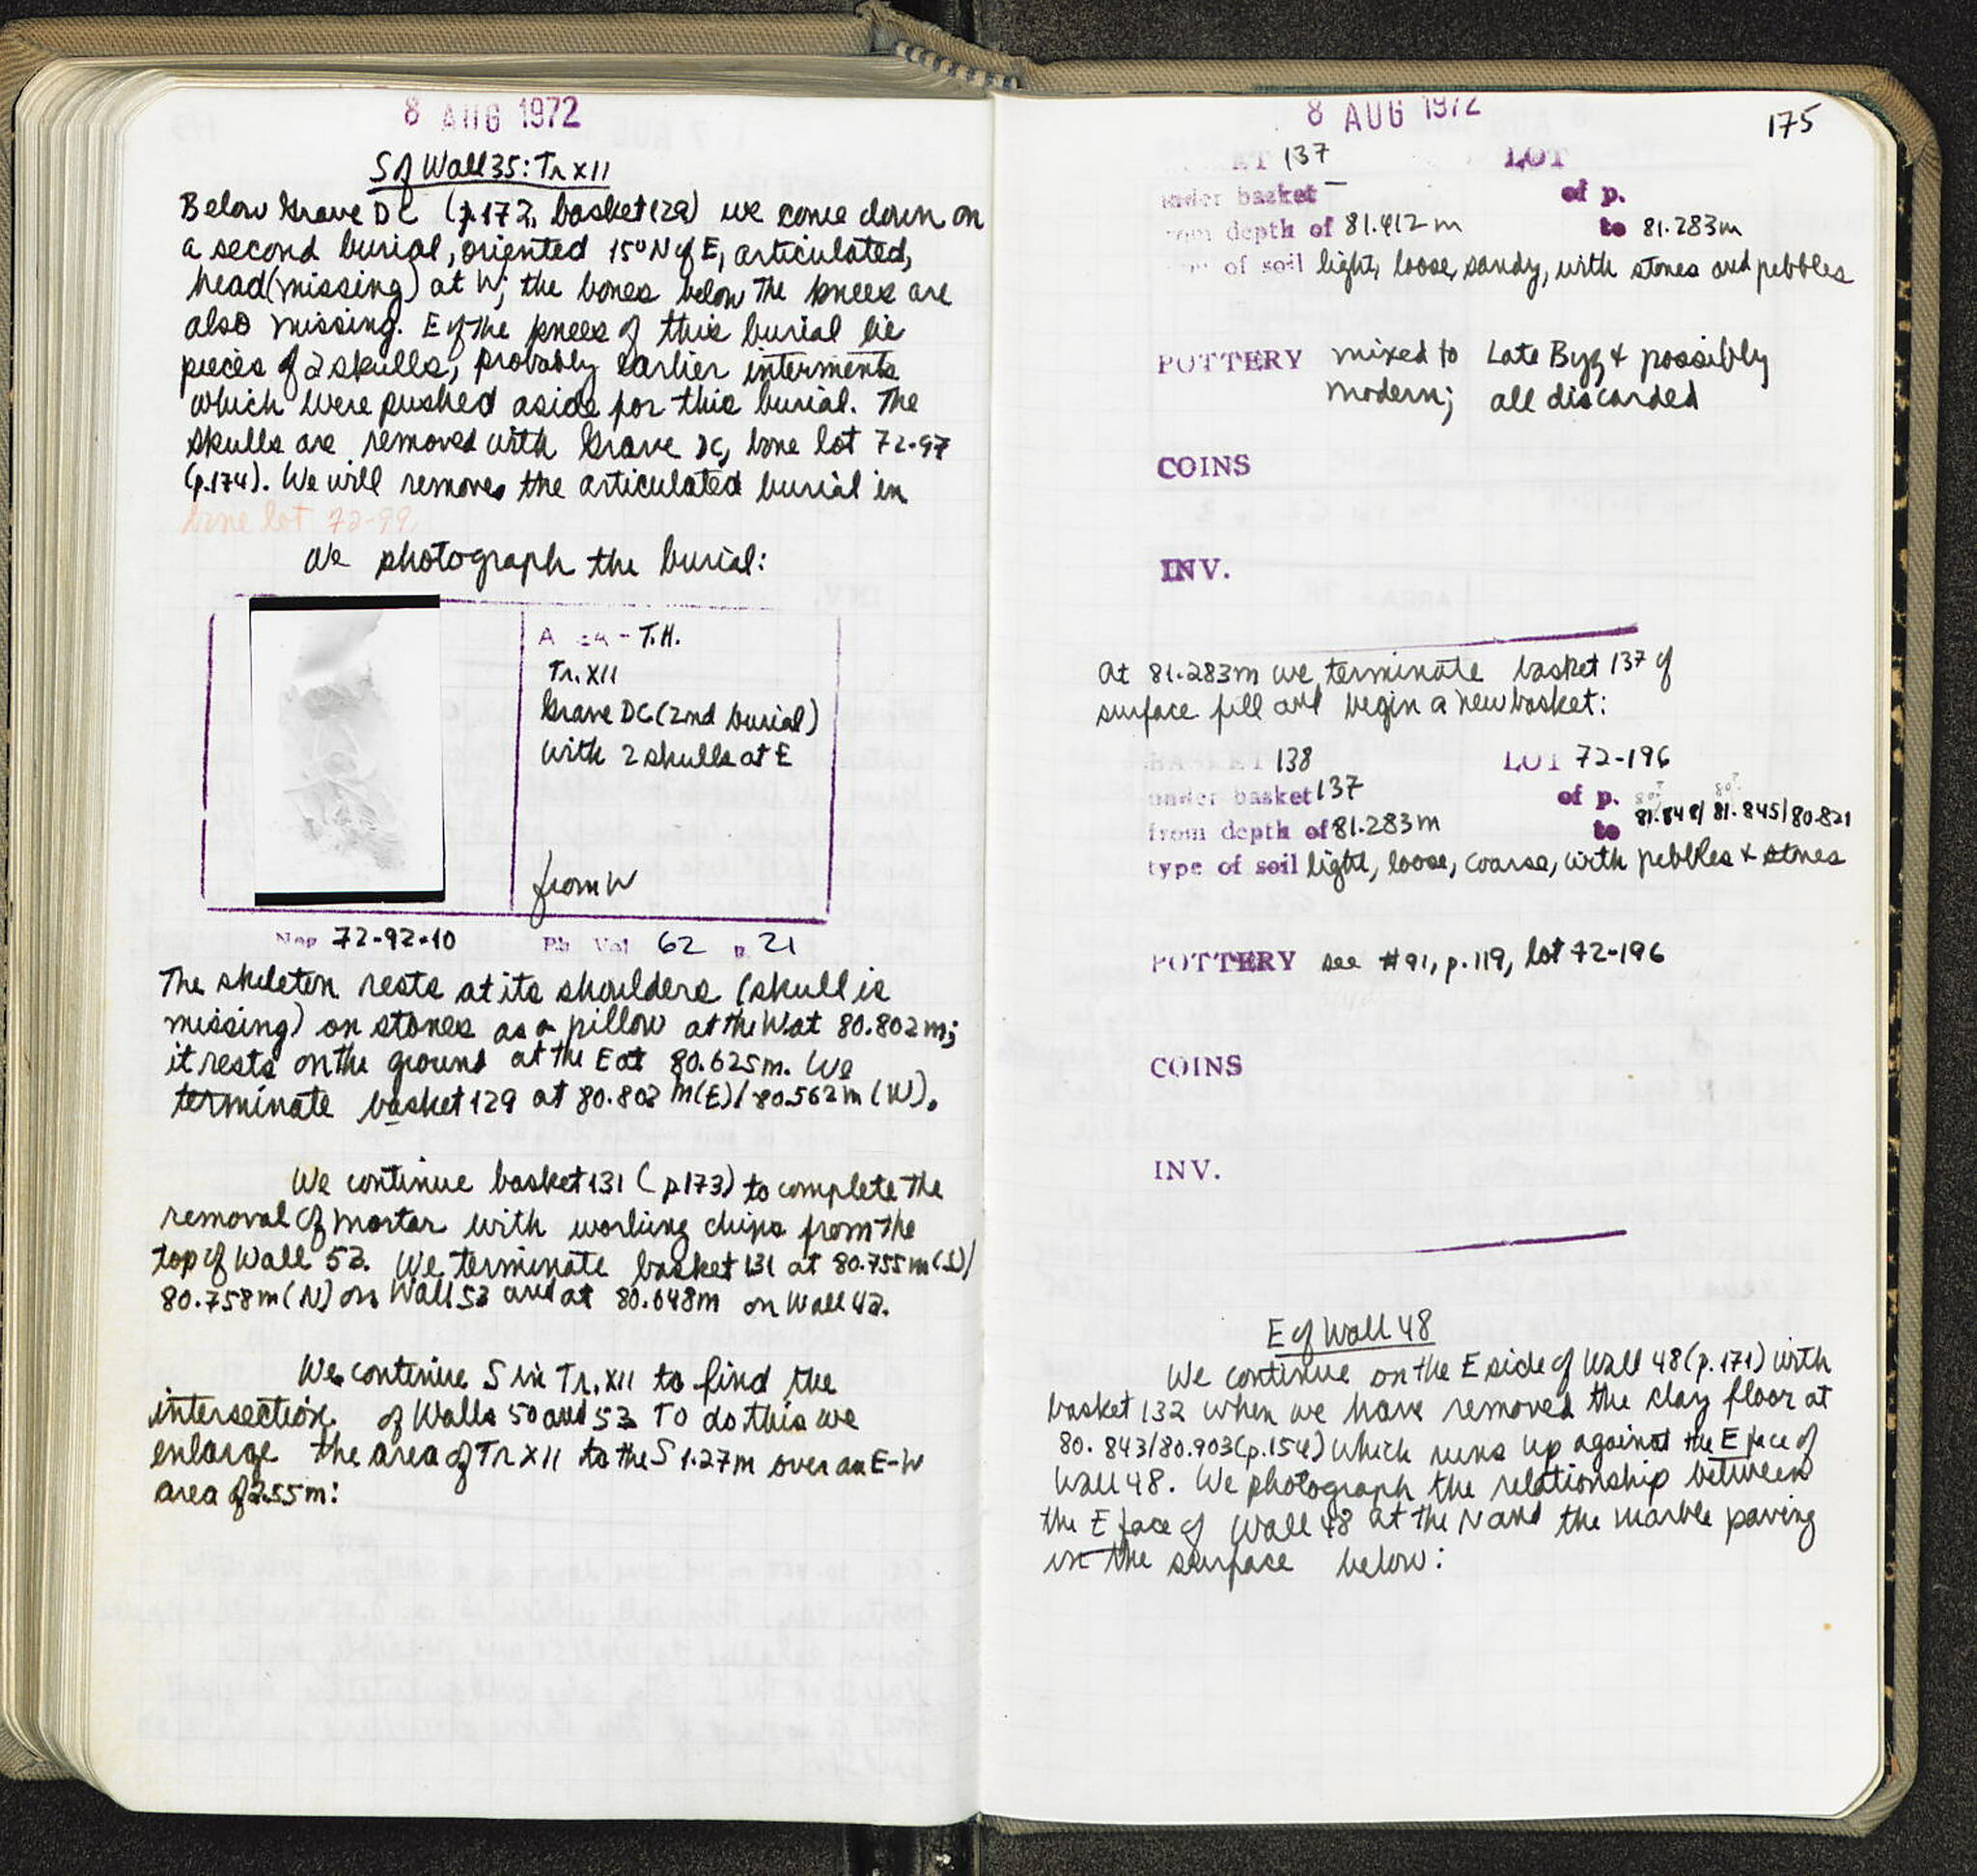 8 AUG 1972
S of Wall 35: Tr XII
Below Grave DC (p.172, basket 129) we come down on
a second burial, oriented 15° N of E, articulated,
head (missing) at W; the bones below the knees are
also missing. E of the knees of this burial lie
pieces of 2 skulls, probably earlier interments
which were pushed aside for this burial. The
skulls are removed with Grave DC, bone lot 72-97
(p.174). We will removes the articulated burial in
bone lot 72-99
We photograph the burial:
A EA - T.H.
Tr. XII
Grave DC (2nd burial)
with 2 skulls at E
from W
Neg 72-92-10 Ph Vol 62 p 21
The skeleton rests at its shoulders (skull is
missing) on stones as a pillow at the W at 80.802 m;
it rests on the ground at the E at 80.625m. We
terminate basket 129 at 80.802 m(E)/80.562m (W).
We continue basket 131 (p173) to complete the
removal of mortar with working chips from the
top of Wall 53. We terminate basket 131 at 80.755m(S)/
80.758m(N) on Wall 53 and at 80.648m on Wall 42.
We continue S in Tr. XII to find the
intersection of Walls 50 and 53 To do this we
enlarge the area of Tr XII to the S 1.27m over an E-W
area of 2.55m:
8 AUG 1972
175
KET 137 LOT
under basket – of p.
from depth of 81.412 m to 81.283m
of soil light, loose, sandy, with stones and pebbles
POTTERY mixed to Late Byz & possibly
modern; all discarded
COINS
INV.
At 81.283m we terminate basket 137 of
surface fill and begin a new basket:
BASKET 138 LOT 72-196
under basket 137 of p. 80? 80?
from depth of 81.283m to 81.848/ 81.845/80.821
type of soil light, loose, coarse, with pebbles & stones
POTTERY see #91, p.119, lot 72-196
COINS
INV.
E of Wall 48
We continue on the E side of Wall 48 (p.171) with
basket 132 when we have removed the clay floor at
80.843/80.903(p.154) which runs up against the E face of
Wall 48. We photograph the relationship between
the E face of Wall 48 at the N and the marble paving
in the surface below: